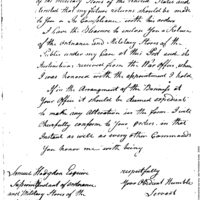 of the military Stores of the United States and
direct that my future returns should be made
to you & In Compliance with his orders
I have the Pleasure to enclose you a Return
of the ordnance and Military Stores of the
Public under my Care at this Post and the
Instructions received from the War office, when
I was honored with the appointment I hold
If in the Arrangement of the Business of
Your Office it should be deemed expedient
to make any alteration in the form I will
Chearfully conform to your orders in that
Instant as well as every other Commands
You honor me with being
Samuel Hodgdon Esquire
Superintendant of ordnance
and Military Stores of the
respectfully
Your Obedient Humble
Servant